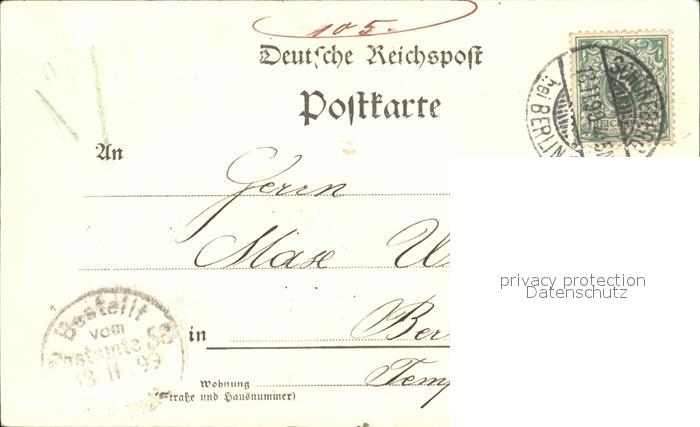 105.
Deutsche Reichspost
Postkarte
SCHÖNEBERG
bei BERLIN
An
Herrn
Max U
privacy protection
Datenschutz
Bestellt
vom
Postamte 58
13 11 99
in Ber
Wohnung Temp
(Straße und Hausnummer)